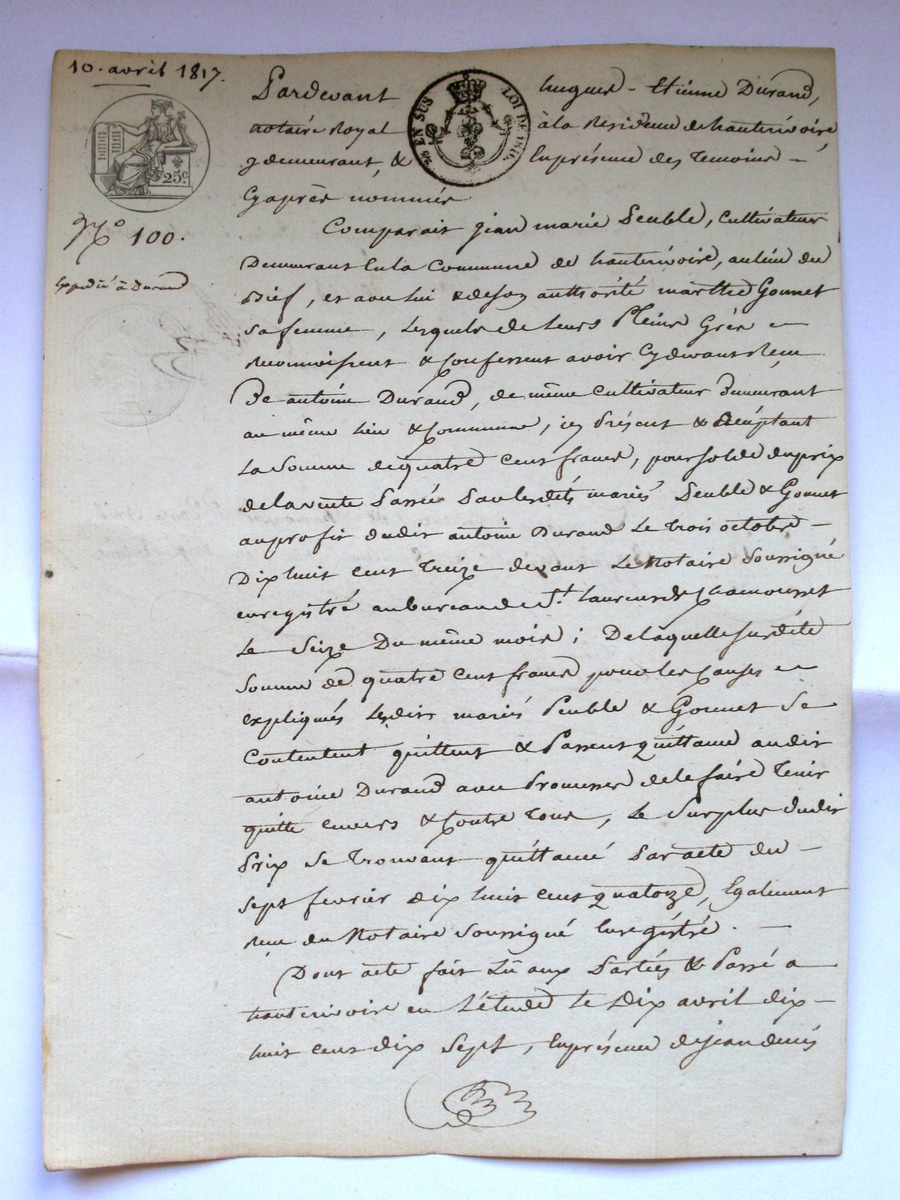 10. avril 1817.
25 EN SUS LOI DE 1816.
25c
N.o 100.
Expédié à Durand
Pardevant hugues - Etienne Durand,
notaire Royal à la Résidence de hauterivoire
y demeurant, & En présence des Temoins -
Cyaprès nommés
Comparait jean marie Peuble, Cultivateur
Demeurant En la Commune de hauterivoire, au lieu du
Bief, et avec lui & de son authorité marthe Gonnet
sa femme, Lesquels de leurs Pleins Grés -
Reconnoissent & Confessent avoir Cydevant Reçu
De antoine Durand, de même Cultivateur Demeurant
au même Lieu & Commune, icy Présent & Acceptant
La Somme de quatre Cent francs, pour solde du prix
de la vente Passée Par lesdits mariés Peuble & Gonnet
au profit dudit antoine Durand Le Trois octobre -
Dix huit Cent Treize devant Le Notaire Soussigné
enregistré au bureau de St. Laurent de Chamousset
Le Seize Du même mois; De laquelle susdite
Somme de quatre Cent francs pour les Causes -
expliqués Lesdits mariés Peuble & Gonnet Se
Contentent quittent & Passent quittance audit
antoine Durand avec Promesse de le faire Tenir
quitte envers & Contre Tous, Le Surplus dudit
Prix Se Trouvant quittancé Par acte du -
sept fevrier Dix huit Cent quatorze, Egalement
Reçu du Notaire Soussigné Enregistré. -
Dont acte fait Lû aux Parties & Passé a
hauterivoire en L'étude le Dix avril dix -
huit Cent dix Sept, En présence de jean denis